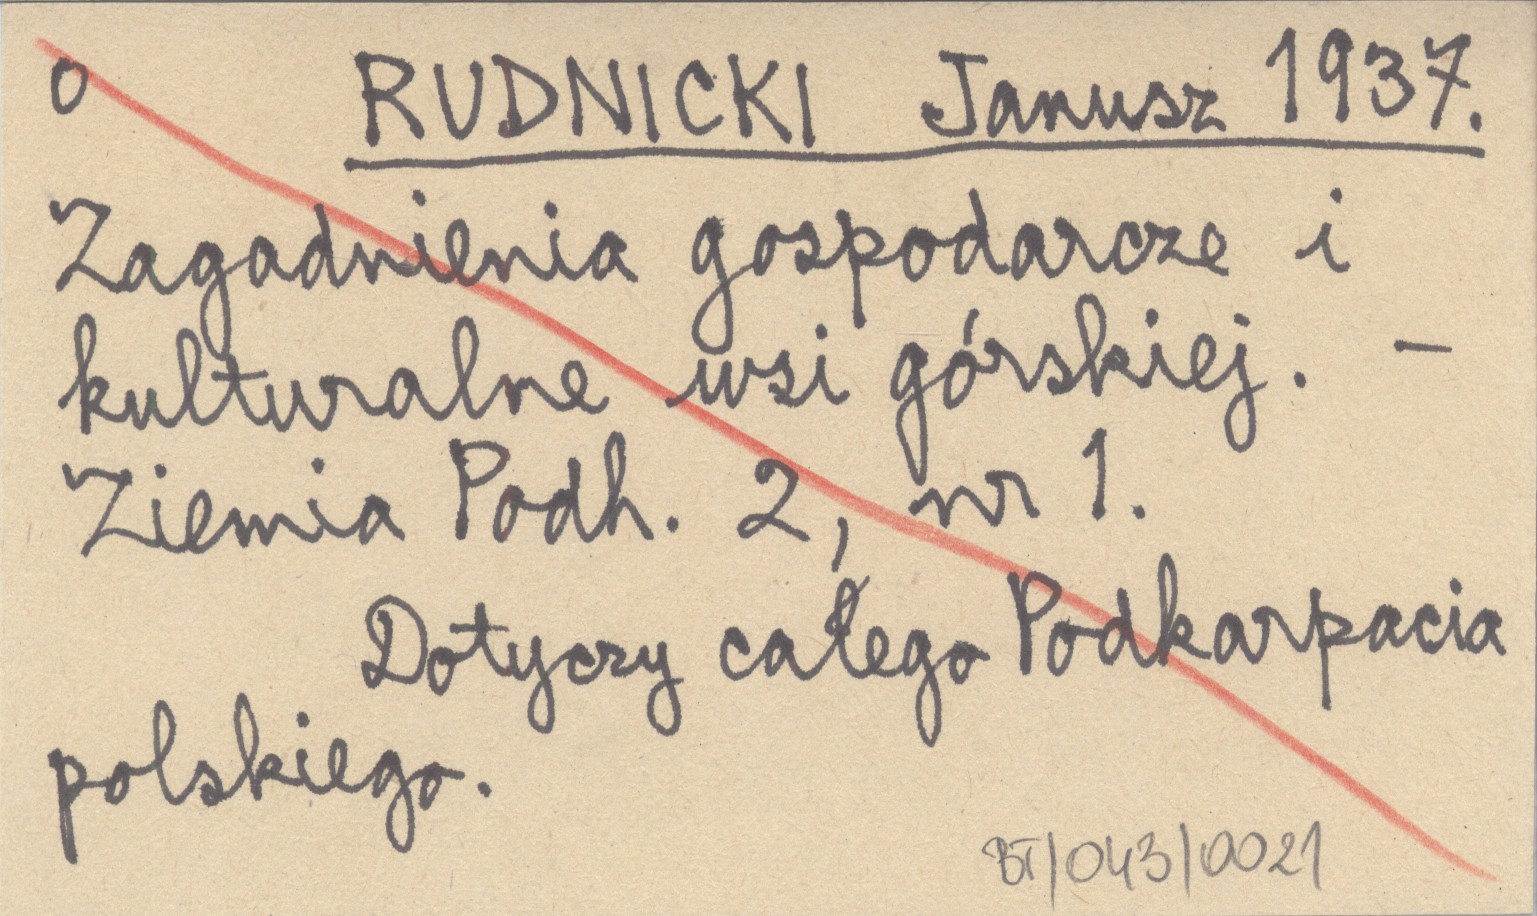 o RUDNICKI Janusz 1937.
Zagadnienia gospodarcze i
kulturalne wsi górskiej. –
Ziemia Podh. 2, nr 1.
Dotyczy całego Podkarpacia
polskiego.
BT/043/0021